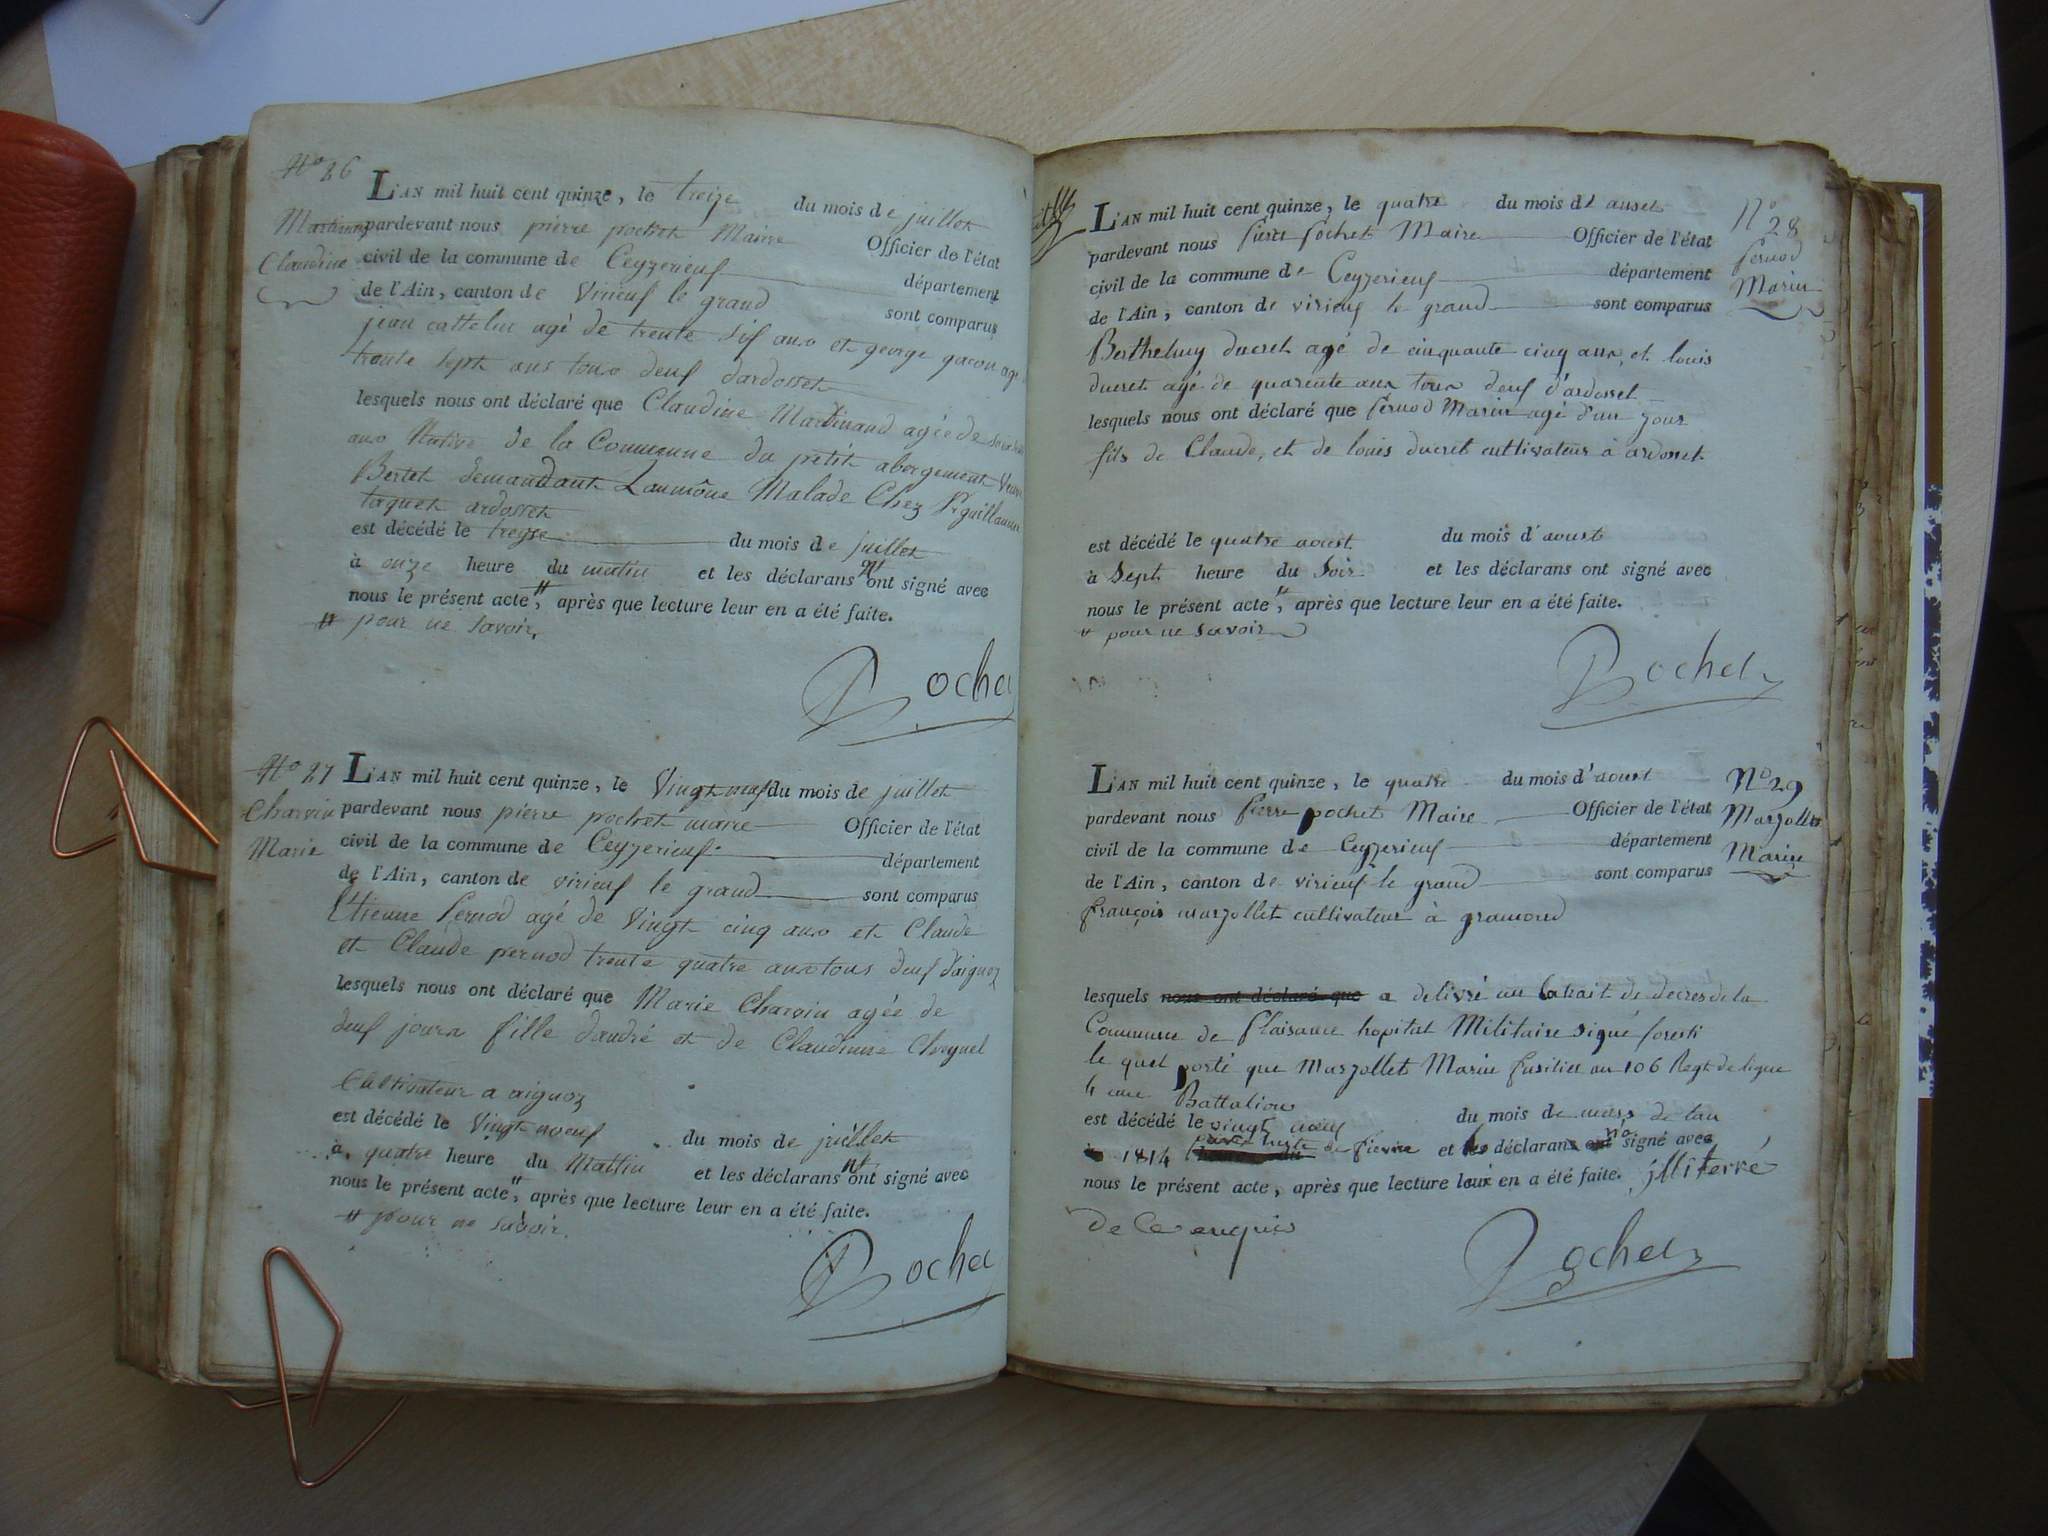 N° 26
L'AN mil huit cent quinze, le treize du mois de juillet
Martinand pardevant nous pierre pochet Maire Officier de l'état
Claudine civil de la commune de Ceyzerieuf département
de l'Ain, canton de Virieuf le grand sont comparus
jean cattelin agé de trente sif ans et george gacon agé
trente sept ans tous deuf dardosset
lesquels nous ont déclaré que Claudine Martinand agée de
ans Native de la Commune du petit abergement veuve
Bertet demandant Laumône Malade Chez guillaume
taquet ardosset
est décédé le treyse du mois de juillet
à onze heure du matin et les déclarans nt ont signé avec
nous le présent acte, # après que lecture leur en a été faite.
# pour ne savoir.
Pochet
N° 27 L'AN mil huit cent quinze, le Vingt neuf du mois de juillet
Charvin pardevant nous pierre pochet maire Officier de l'état
Marie civil de la commune de Ceyzerieuf département
de l'Ain, canton de virieuf le grand sont comparus
Etienne Pernod agé de Vingt cinq ans et Claude
et Claude pernod trente quatre ans tous deuf daignoz
lesquels nous ont déclaré que Marie Charvin agée de
deuf jours fille dandré et de Claudinne
Cultivateur a aignoz
est décédé le Vingt neuf du mois de juillet
à quatre heure du Mattin et les déclarans nt ont signé avec
nous le présent acte, # après que lecture leur en a été faite.
# pour ne savoir.
Pochet
L'AN mil huit cent quinze, le quatre du mois de aoust N° 28
pardevant nous pierre pochet Maire Officier de l'état pernod
civil de la commune de Ceyzerieuf département Marin
de l'Ain, canton de virieuf le grand sont comparus
Berthelmy ducret agé de cinquante cinq ans, et louis
ducret agé de quarente ans tous deuf d'ardosset
lesquels nous ont déclaré que pernod Marin agé d'un jour
fils de Claude, et de louis ducret cultivateur à ardosset
est décédé le quatre aoust du mois d'aoust
à Sept heure du Soir et les déclarans ont signé avec
nous le présent acte, # après que lecture leur en a été faite.
# pour ne savoir
Pochet
L'AN mil huit cent quinze, le quatre du mois d'aoust N° 29
pardevant nous pierre pochet Maire Officier de l'état Marjollet
civil de la commune de Ceyzerieuf département Marin
de l'Ain, canton de virieuf le grand sont comparus
françois marjollet cultivateur à gramond
lesquels nous ont déclaré que a delivré un Extrait de deces de la
Commune de Plaisance hopital Militaire signé foresti
le quel porté que Marjollet Marin fusilier au 106 Regt de ligne
4 eme Battalion
est décédé le vingt neuf du mois de mars de lan
1814 de fievre et les déclarans ont n'a signé avec
nous le présent acte, après que lecture leur en a été faite. illiterré
de ce enquis
Pochet